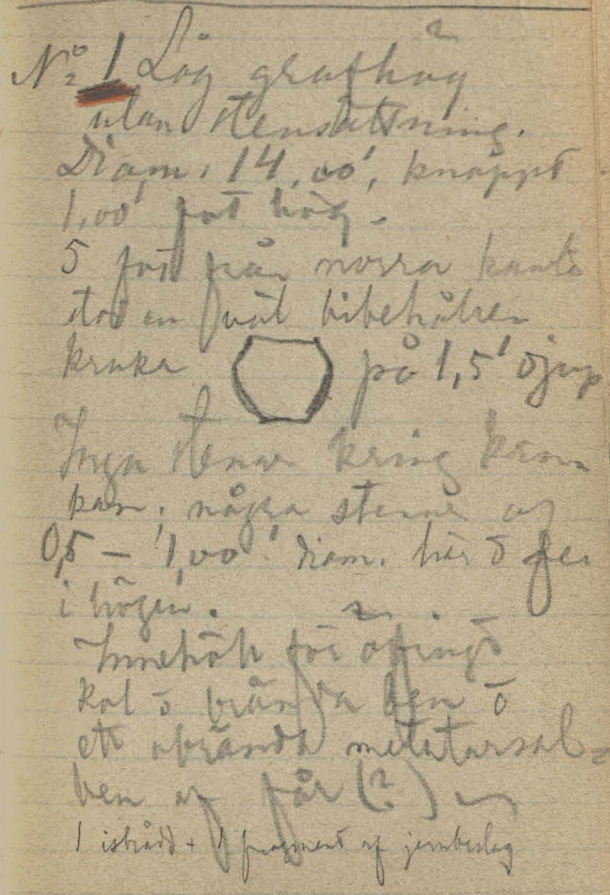 No 1 Låg grafhög
utan stensättning.
Diam. 14,00', knappt
1,00' fot hög.
5 fot från norra kanten
stod en väl bibehållen
kruka på 1,5' djup
Inga stenar kring kru-
kan; några stenar af
0,5 – 1,00' diam. här o der
i högen.
Innehöll för öfrigt
kol o brända ben o
ett obrända metatarsal-
ben af får (?)
1 isbrodd + 1 fragment af jernbeslag